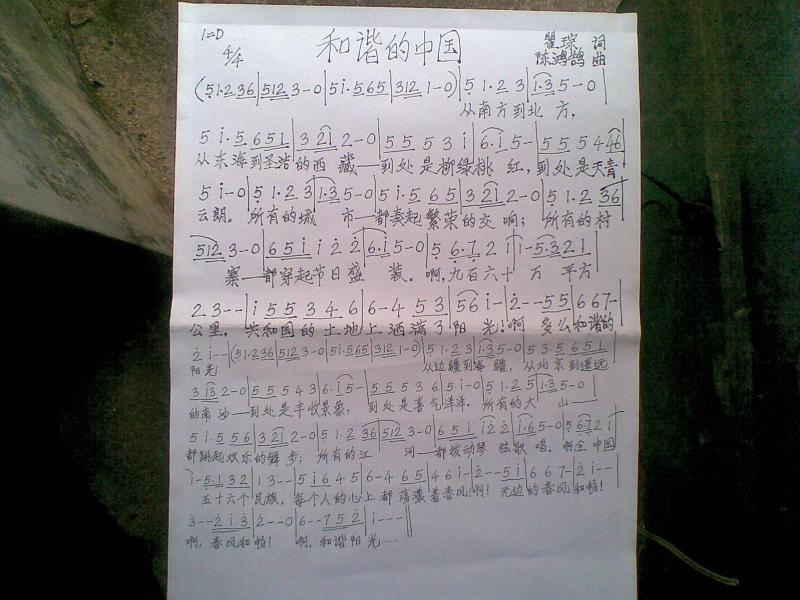 1=D
4/4
和谐的中国
瞿琮 词
陈鸿鹄 曲
(51·236|5123-0|5i·565|3121-0)|51·23|1·35-0|
从南方到北 方,
5i·5651|32i2-0|5553i|6·i5-|555446|
从东海到圣洁的西 藏—到处是柳绿桃 红,到处是天青
5i-0|51·23|1·35-0|5i·565|32i2-0|51·236|
云朗。所有的城 市—都奏起繁荣的交 响; 所有的村
5123-0|65ii22|6·i5-0|56·72i|i-5·321|
寨—都穿起节日盛 装。啊,九百六十 万 平方
23--|i55346|6-453|56i-|2--55|667-|
公里, 共和国的土地上洒满了阳 光!啊 多么和谐的
2i--|(51·236|5123-0|5i·565|3121-0)|51·23|1·35-0|53·5651|
阳光 从边疆到海 疆,从北京到遥远
3i32-0|555543|6·i5-|555536|5i-0|51·25|1·35-0|
的南 沙—到处是丰收景象, 到处是喜气洋洋。所有的大 山—
5i·556|32i2-0|51·236|5123-0|65ii22|i·65-0|56·72i|
都跳起欢乐的舞 步; 所有的江 河—都拨动琴 弦歌 唱。啊全中国
i-5·132|13--|5i645|6-465|46i-|2--5i|667-|2i--|
五十六个民族,每个人的心上都荡漾着春风!啊!无边的春风和畅!
3--2i3|2--0|6--752|i---‖
啊,春风和畅! 啊,和谐阳光……